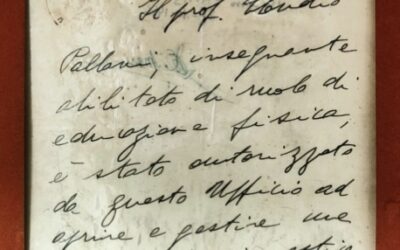 Il prof. Claudio
Pallini, insegnante
abilitato di ruolo di
educazione fisica,
è stato autorizzato
da questo Ufficio ad
aprire e gestire una